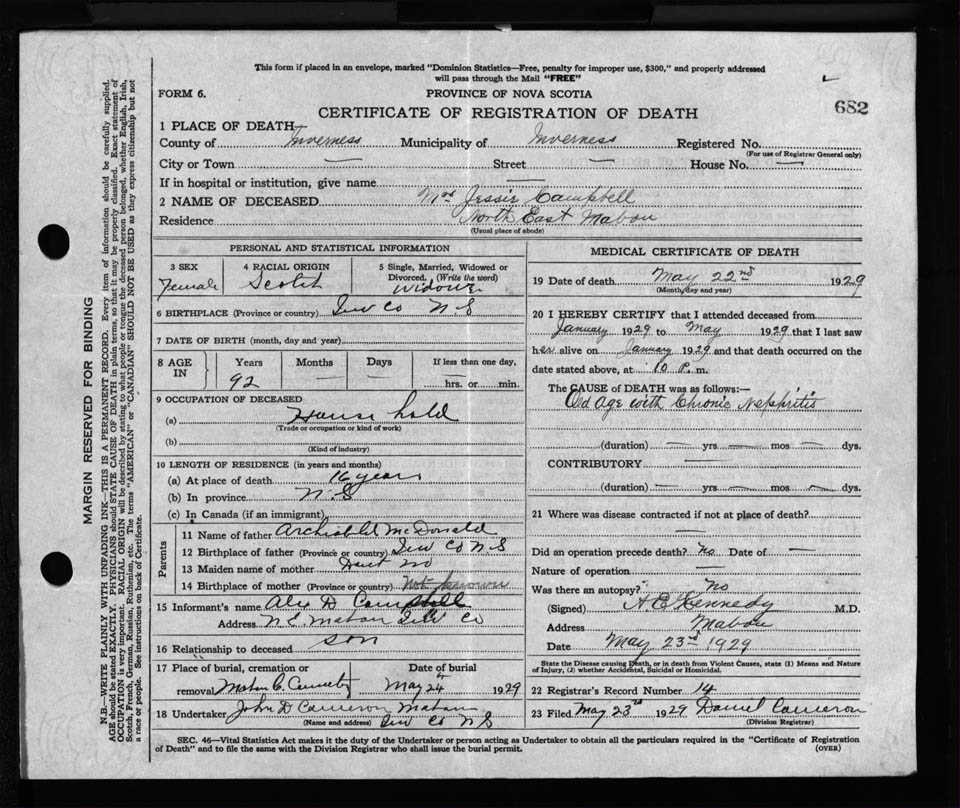 This form if placed in an envelope, marked "Dominion Statistics—Free, penalty for improper use, $300," and properly addressed
will pass through the Mail "FREE"
FORM 6.
PROVINCE OF NOVA SCOTIA
682
CERTIFICATE OF REGISTRATION OF DEATH
1 PLACE OF DEATH—
County of Inverness Municipality of Inverness Registered No.
(For use of Registrar General only)
City or Town — Street — House No. —
If in hospital or institution, give name —
2 NAME OF DECEASED Mrs Jessie Campbell
Residence North East Mabou
(Usual place of abode)
PERSONAL AND STATISTICAL INFORMATION
3 SEX Female
4 RACIAL ORIGIN Scotch
5 Single, Married, Widowed or
Divorced, (Write the word)
Widow
6 BIRTHPLACE (Province or country) Inv Co N S
7 DATE OF BIRTH (month, day and year)
8 AGE IN
Years 92
Months —
Days —
If less than one day,
hrs. or min.
9 OCCUPATION OF DECEASED
(a) House hold
(Trade or occupation or kind of work)
(b)
(Kind of industry)
10 LENGTH OF RESIDENCE (in years and months)
(a) At place of death 16 years
(b) In province N. S
(c) In Canada (if an immigrant)
Parents
11 Name of father Archibald McDonald
12 Birthplace of father (Province or country) Inv Co N S
13 Maiden name of mother
14 Birthplace of mother (Province or country) Not known
15 Informant's name Alex D Campbell
Address N. E. Mabou Inv Co
16 Relationship to deceased son
17 Place of burial, cremation or
removal Mabou C. Cemetry
Date of burial
May 24 1929
18 Undertaker John D Cameron Mabou
(Name and address) Inv Co N S
MEDICAL CERTIFICATE OF DEATH
19 Date of death May 22nd 1929
(Month, day and year)
20 I HEREBY CERTIFY that I attended deceased from
January 1929 to May 1929 that I last saw
her alive on January 1929 and that death occurred on the
date stated above, at 10 P. m.
The CAUSE of DEATH was as follows:—
Old Age with Chronic Nephritis
(duration) — yrs — mos — dys.
CONTRIBUTORY —
(duration) — yrs — mos — dys.
21 Where was disease contracted if not at place of death?
—
Did an operation precede death? No Date of —
Nature of operation —
Was there an autopsy? No
(Signed) A E Kennedy M.D.
Address Mabou
Date May 23rd 1929
State the Disease causing Death, or in death from Violent Causes, state (1) Means and Nature
of Injury, (2) whether Accidental, Suicidal or Homicidal.
22 Registrar's Record Number 14
23 Filed May 23rd 1929 Daniel Cameron
(Division Registrar)
SEC. 46—Vital Statistics Act makes it the duty of the Undertaker or person acting as Undertaker to obtain all the particulars required in the "Certificate of Registration
of Death" and to file the same with the Division Registrar who shall issue the burial permit.
(OVER)
MARGIN RESERVED FOR BINDING
N.B.—WRITE PLAINLY WITH UNFADING INK—THIS IS A PERMANENT RECORD. Every item of information should be carefully supplied.
AGE should be stated EXACTLY. PHYSICIANS should STATE CAUSE OF DEATH in plain terms, so that it may be properly classified. Exact statement of
OCCUPATION is very important. RACIAL ORIGIN will be described by stating to what people or tongue the deceased person belonged, whether English, Irish,
Scotch, French, German, Russian, Ruthenian, etc. The terms "AMERICAN" or "CANADIAN" SHOULD NOT BE USED as they express citizenship but not
a race or people. See instructions on back of Certificate.